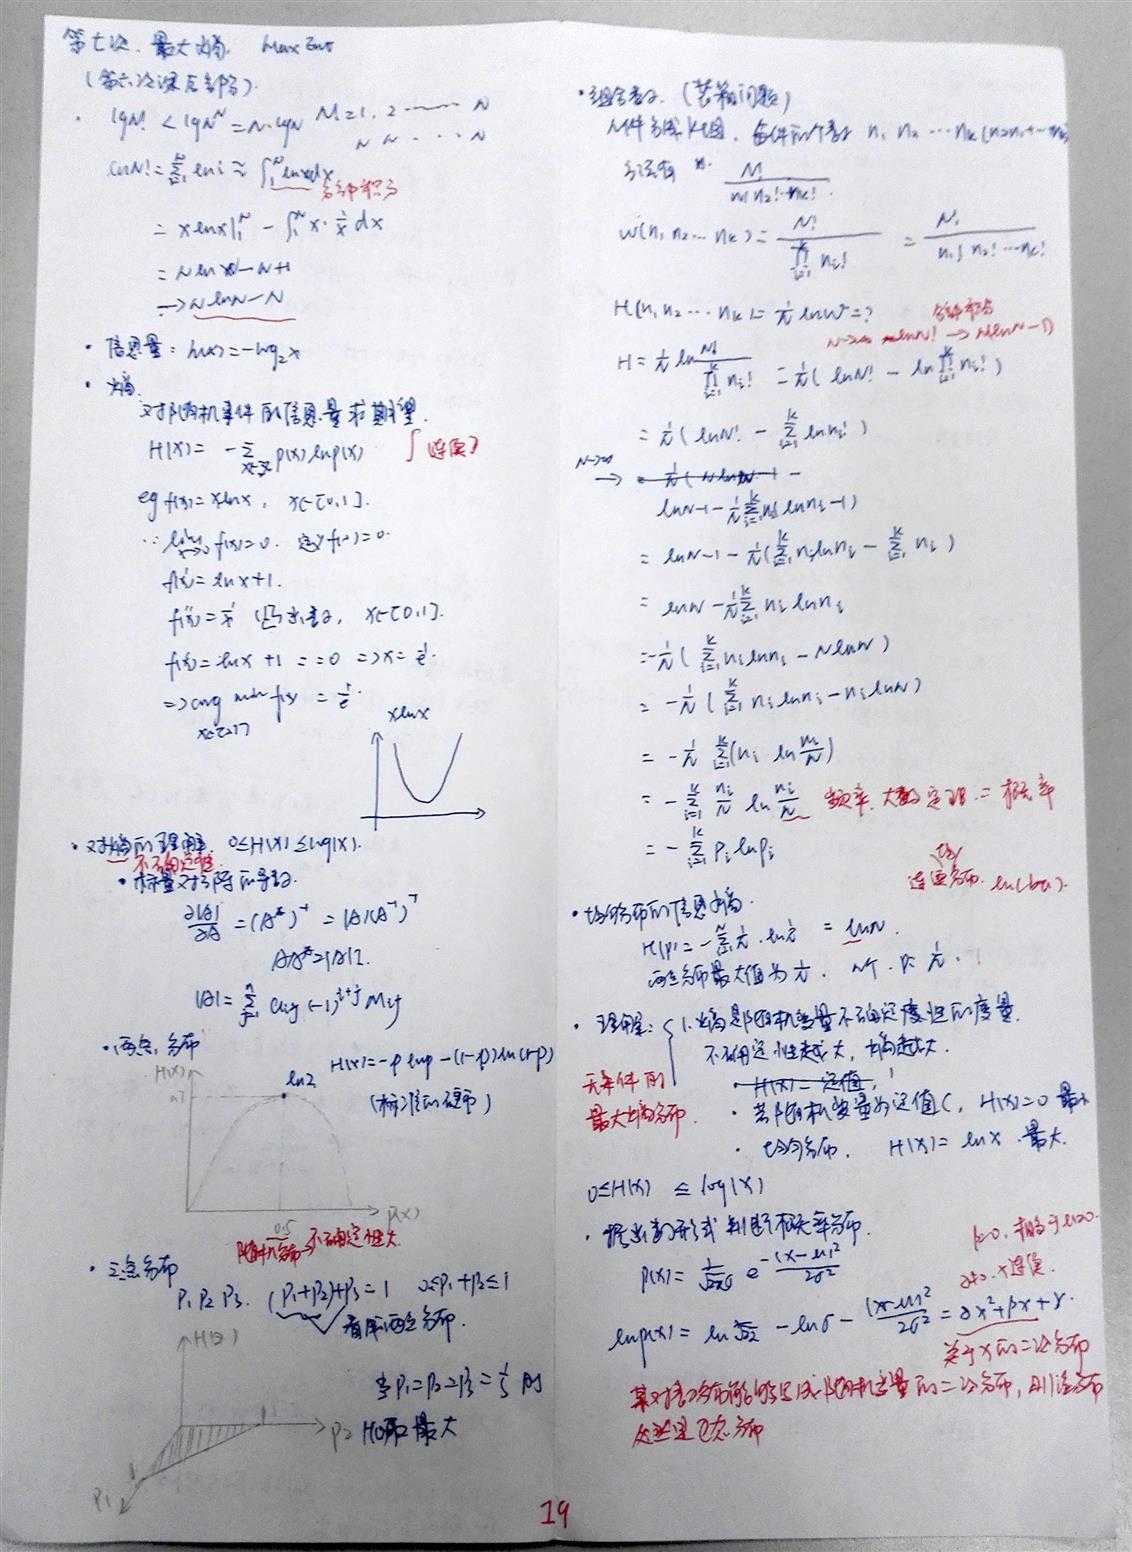 第七次、最大熵. MaxEnt
(第六次课后部分).
· lgN! < lgN^N = N·lgN N! = 1·2 ······ N
N N · · · N
lnN! = Σ_{i=1}^N ln i ≈ ∫_1^N lnx dx
分部积分
= xlnx|_1^N - ∫_1^N x·1/x dx
= NlnN - N+1
→ NlnN - N
· 信息量: h(x) = -log₂x
· 熵.
对随机事件的信息量求期望.
H(X) = -Σ p(x)lnp(x) ∫ (连续)
eg f(x) = xlnx, x∈[0,1].
∵ lim f(x)=0. 定义f(0)=0.
f'(x) = lnx+1.
f''(x) = 1/x 凸函数, x∈[0,1].
f'(x) = lnx+1 = 0 ⇒ x = 1/e.
⇒ arg min f(x) = 1/e.
x∈[0,1]
xlnx
· 对熵的理解. 0≤H(X)≤log|X|.
不确定性
· 标量对方阵的导数.
∂|A|/∂A = (A*)^T = |A|(A^{-1})^T
AA* = |A|I.
|A| = Σ_{j=1}^n a_{ij}(-1)^{i+j}M_{ij}
· 两点分布 H(X) = -plnp-(1-p)ln(1-p)
H(X) ln2
0.5 p(X)
随机分布→不确定性大
· 三点分布
P₁ P₂ P₃. (P₁+P₂)+P₃=1 0≤P₁+P₂≤1
看成两点分布.
当P₁=P₂=P₃=1/3 时
P₂ H(X) 最大
P₁
· 组合数. (装箱问题)
N件分成k组, 每件的个数 n₁ n₂ ··· n_k
分法有 N!/(n₁!n₂!···n_k!)
W(n₁,n₂···n_k) = N!/∏_{i=1}^k n_i! = N!/(n₁! n₂! ···n_k!)
H(n₁,n₂···n_k) = 1/N lnW = ?
N→∞ lnN! → N(lnN-1)
H = 1/N ln N!/∏_{i=1}^k n_i! = 1/N( lnN! - ln∏_{i=1}^k n_i! )
= 1/N( lnN! - Σ_{i=1}^k ln n_i! )
N→∞
→
lnN-1-1/N Σ_{i=1}^k n_i(ln n_i-1)
= lnN-1-1/N(Σ_{i=1}^k n_i ln n_i - Σ_{i=1}^k n_i)
= lnN - 1/N Σ_{i=1}^k n_i ln n_i
= -1/N( Σ_{i=1}^k n_i ln n_i - NlnN)
= -1/N( Σ_{i=1}^k n_i ln n_i - n_i lnN)
= -1/N Σ_{i=1}^k (n_i ln n_i/N)
= -Σ_{i=1}^k n_i/N ln n_i/N 频率. 大数定理 = 概率
= -Σ_{i=1}^k p_i ln p_i
均匀
连续分布. ln(b-a).
· 均匀分布的信息熵.
H(p) = -Σ_{i=1}^N 1/N·ln1/N = lnN.
两点分布最大值为
· 理解: 1. 熵是随机变量不确定性的度量.
不确定性越大, 熵越大.
无条件的
最大熵分布.
H(X) = 定值,
· 若随机变量为定值C, H(X)=0 最小
· 均匀分布. H(X) = lnX 最大.
0≤H(X) ≤ log|X|
· 给出数形式判断概率分布.
p(x) = 1/(√(2π)σ) e^{-(x-μ)²/2σ²}
lnp(x) = ln 1/√(2π) - lnσ - (x-μ)²/2σ² = αx²+βx+γ.
关于x的二次分布
19